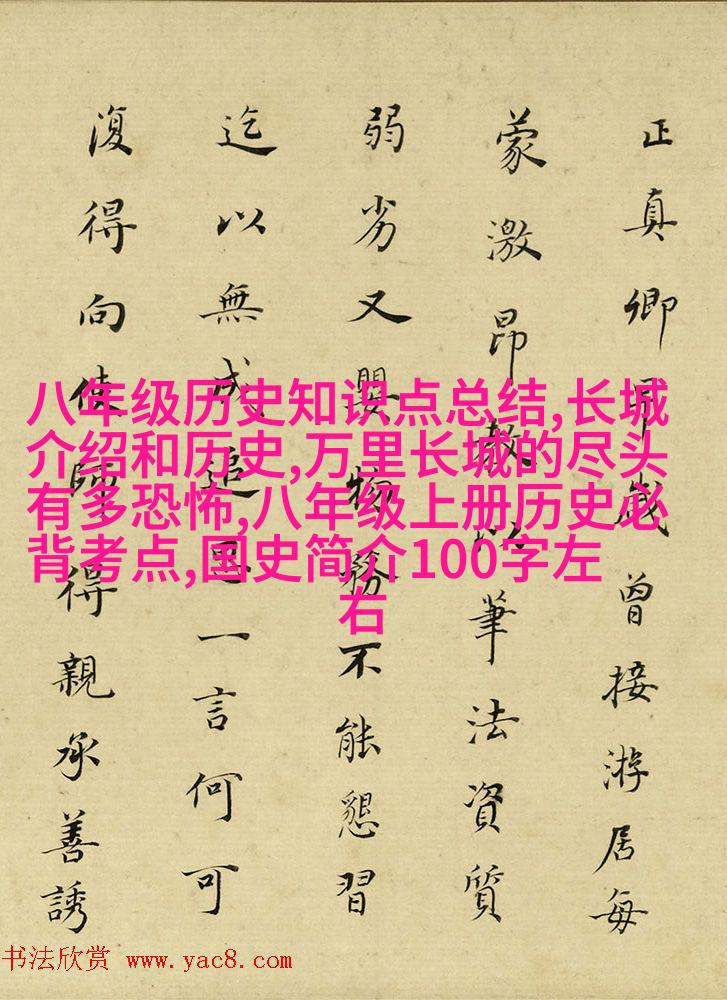 正真卿早歲曾接游居每
蒙激昂教以筆法資質
弱劣又嬰物務不能懇習
迄以無成追思一言何可
復得向使師得親承善誘
八年级历史知识点总结,长城
介绍和历史,万里长城的尽头
有多恐怖,八年级上册历史必
背考点,国史简介100字左
右
书法欣赏 www.yac8.com